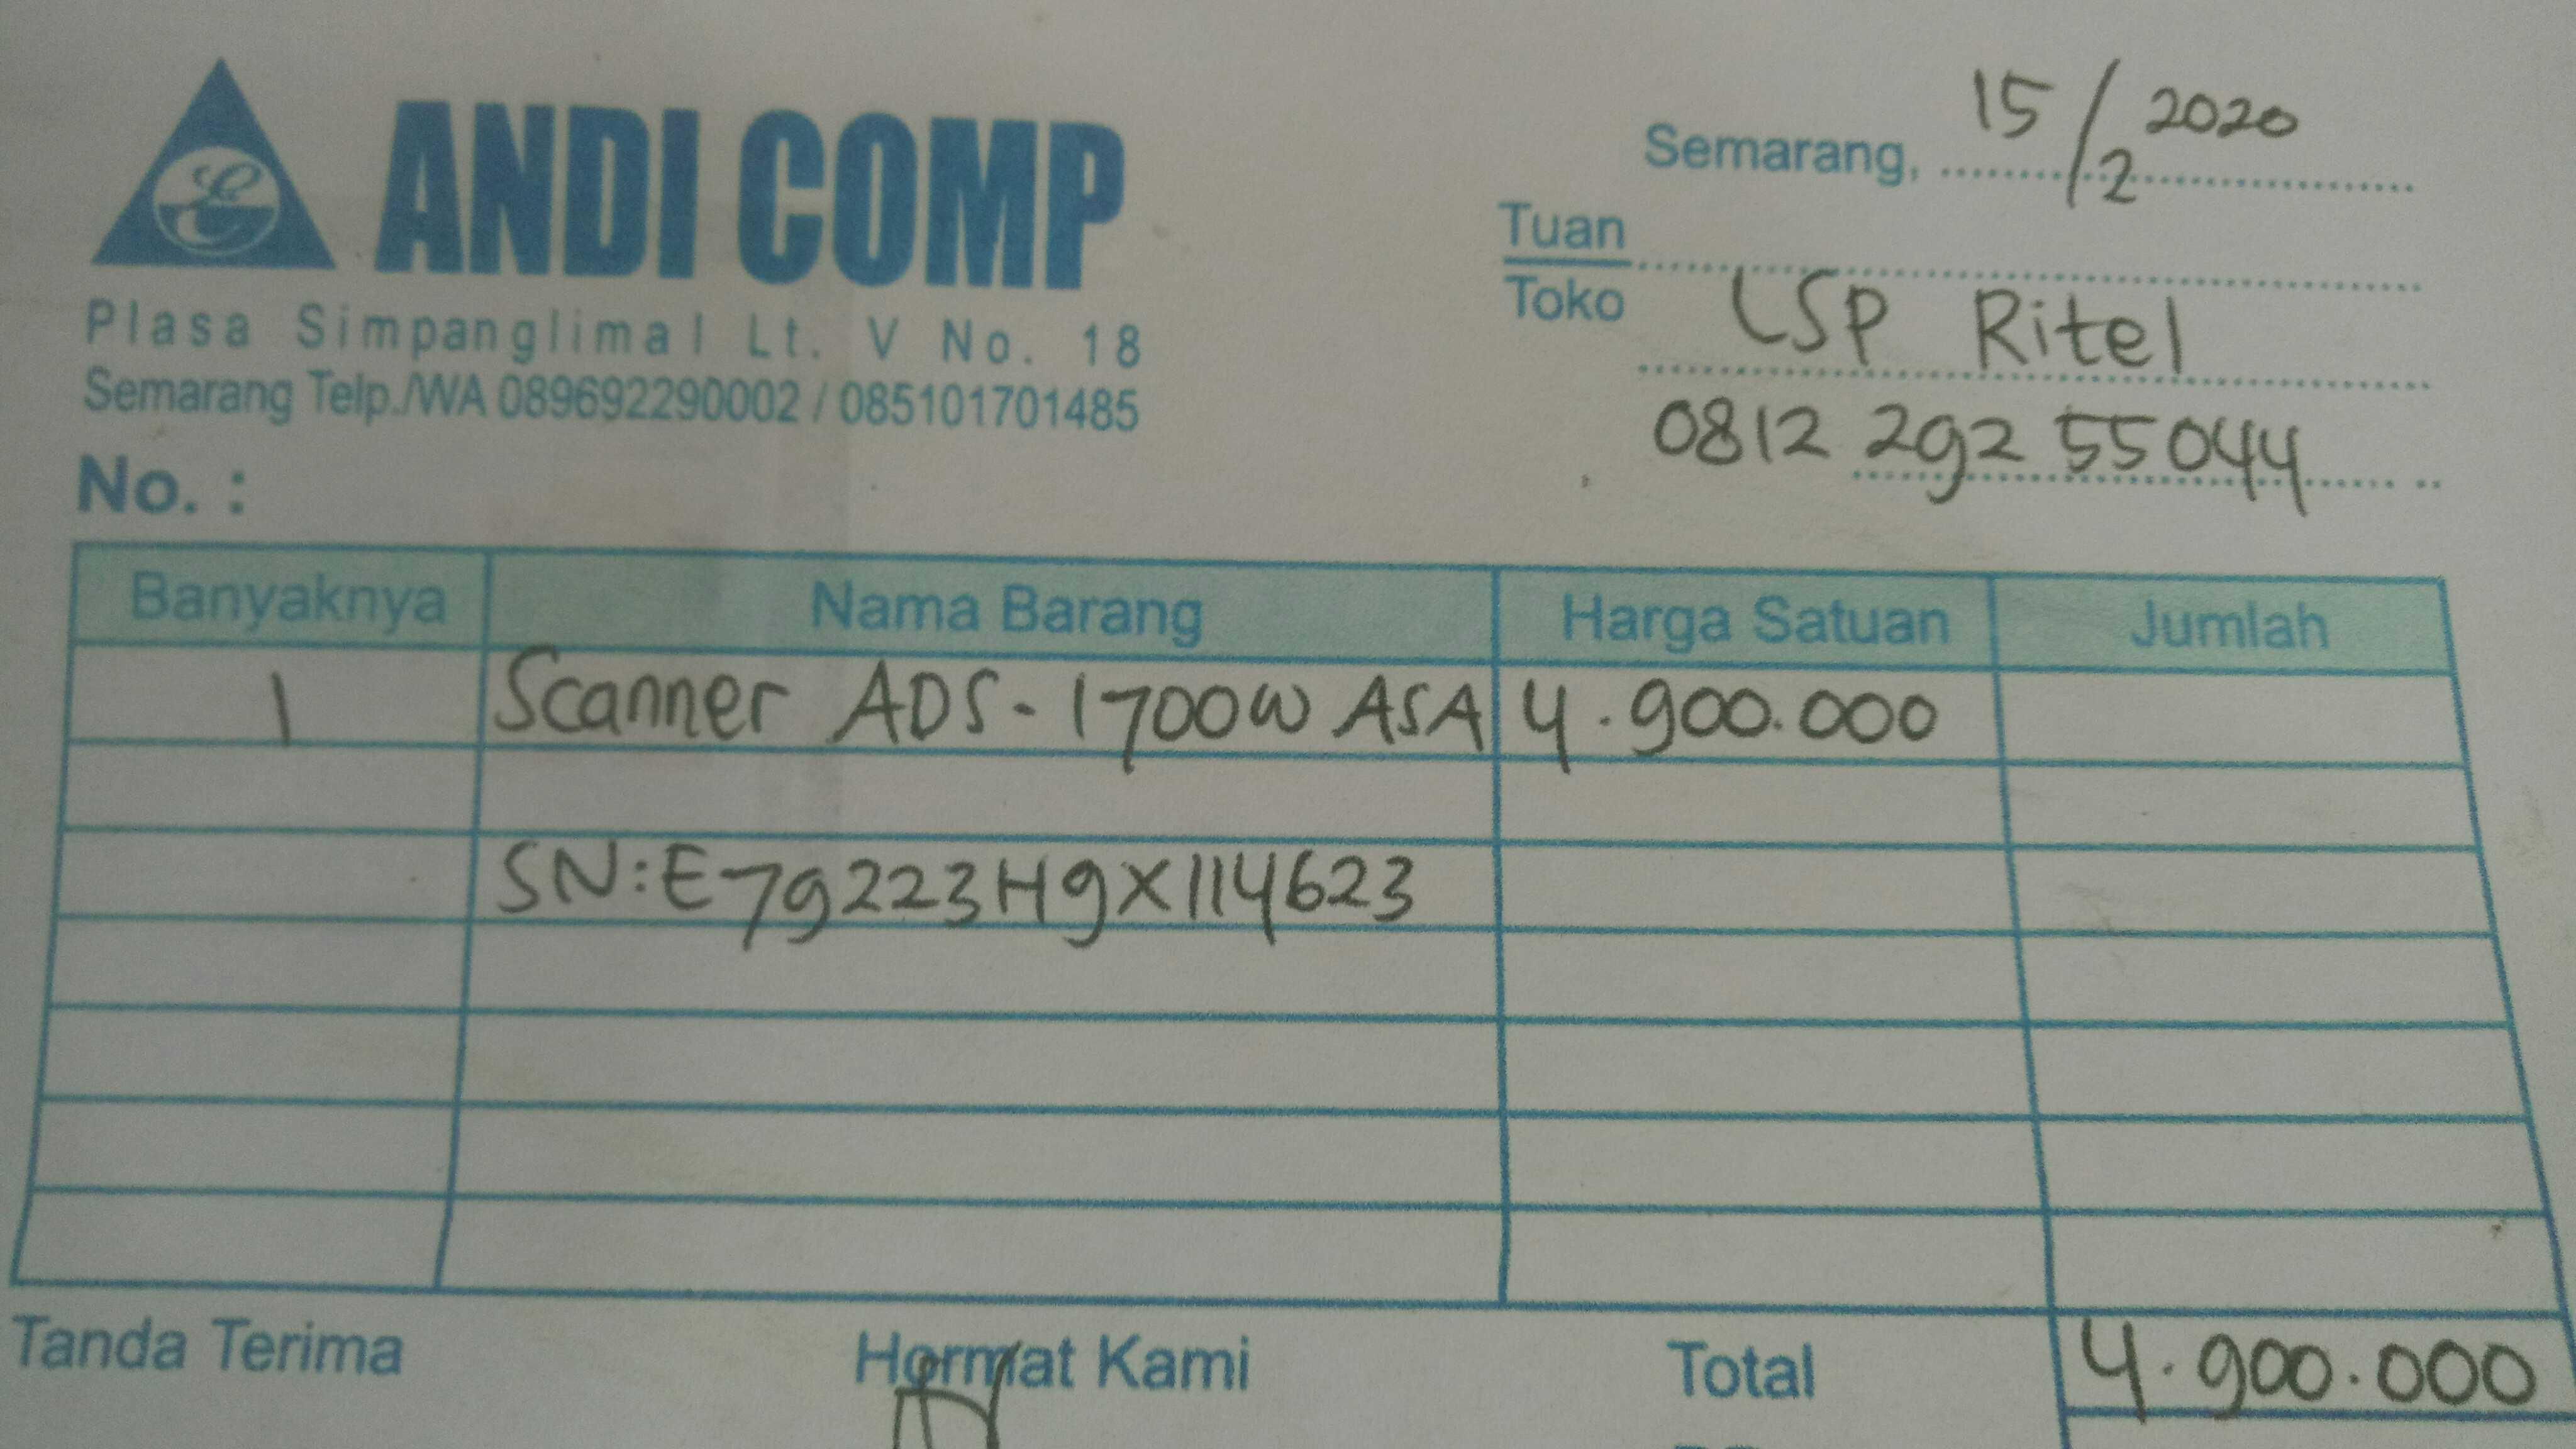 ANDI COMP
Plasa Simpanglimal Lt. V No. 18
Semarang Telp./WA 089692290002 / 085101701485
No. :
Semarang, 15/2 2020
Tuan
Toko
LSP Ritel
0812 292 55044
Banyaknya Nama Barang Harga Satuan Jumlah
1 Scanner ADS-1700W ASA 4.900.000
SN:E79223H9X114623
Tanda Terima Hormat Kami Total 4.900.000